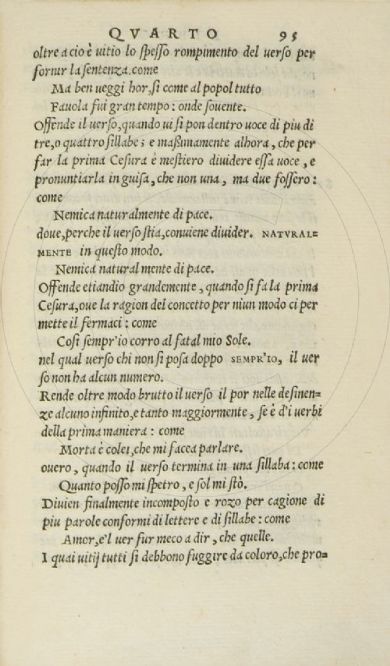 QVARTO 95
oltre a cio è uitio lo spesso rompimento del uerso per
fornir la sentenza. come
Ma ben ueggi hor, si come al popol tutto
Fauola fui gran tempo: onde souente.
Offende il uerso, quando ui si pon dentro uoce di piu di
tre, o quattro sillabe; e massimamente alhora, che per
far la prima Cesura è mestiero diuidere essa uoce, e
pronuntiarla in guisa, che non una, ma due fossero:
come
Nemica naturalmente di pace.
doue, perche il uerso stia, conuiene diuider. NATVRALE-
MENTE in questo modo.
Nemica natural mente di pace.
Offende etiandio grandemente, quando si fa la prima
Cesura, oue la ragion del concetto per niun modo ci per
mette il fermaci: come
Così sempr'io corro al fatal mio Sole.
nel qual uerso chi non si posa doppo SEMPR'IO, il uer
so non ha alcun numero.
Rende oltre modo brutto il uerso il por nelle desinen-
ze alcuno infinito, e tanto maggiormente, se è d'i uerbi
della prima maniera: come
Morta è colei, che mi facea parlare.
ouero, quando il uerso termina in una sillaba: come
Quanto posso mi spetro, e sol mi stò.
Diuien finalmente incomposto e rozo per cagione di
piu parole conformi di lettere e di sillabe: come
Amor, e'l uer fur meco a dir, che quelle.
I quai uitij tutti si debbono fuggire da coloro, che pro-